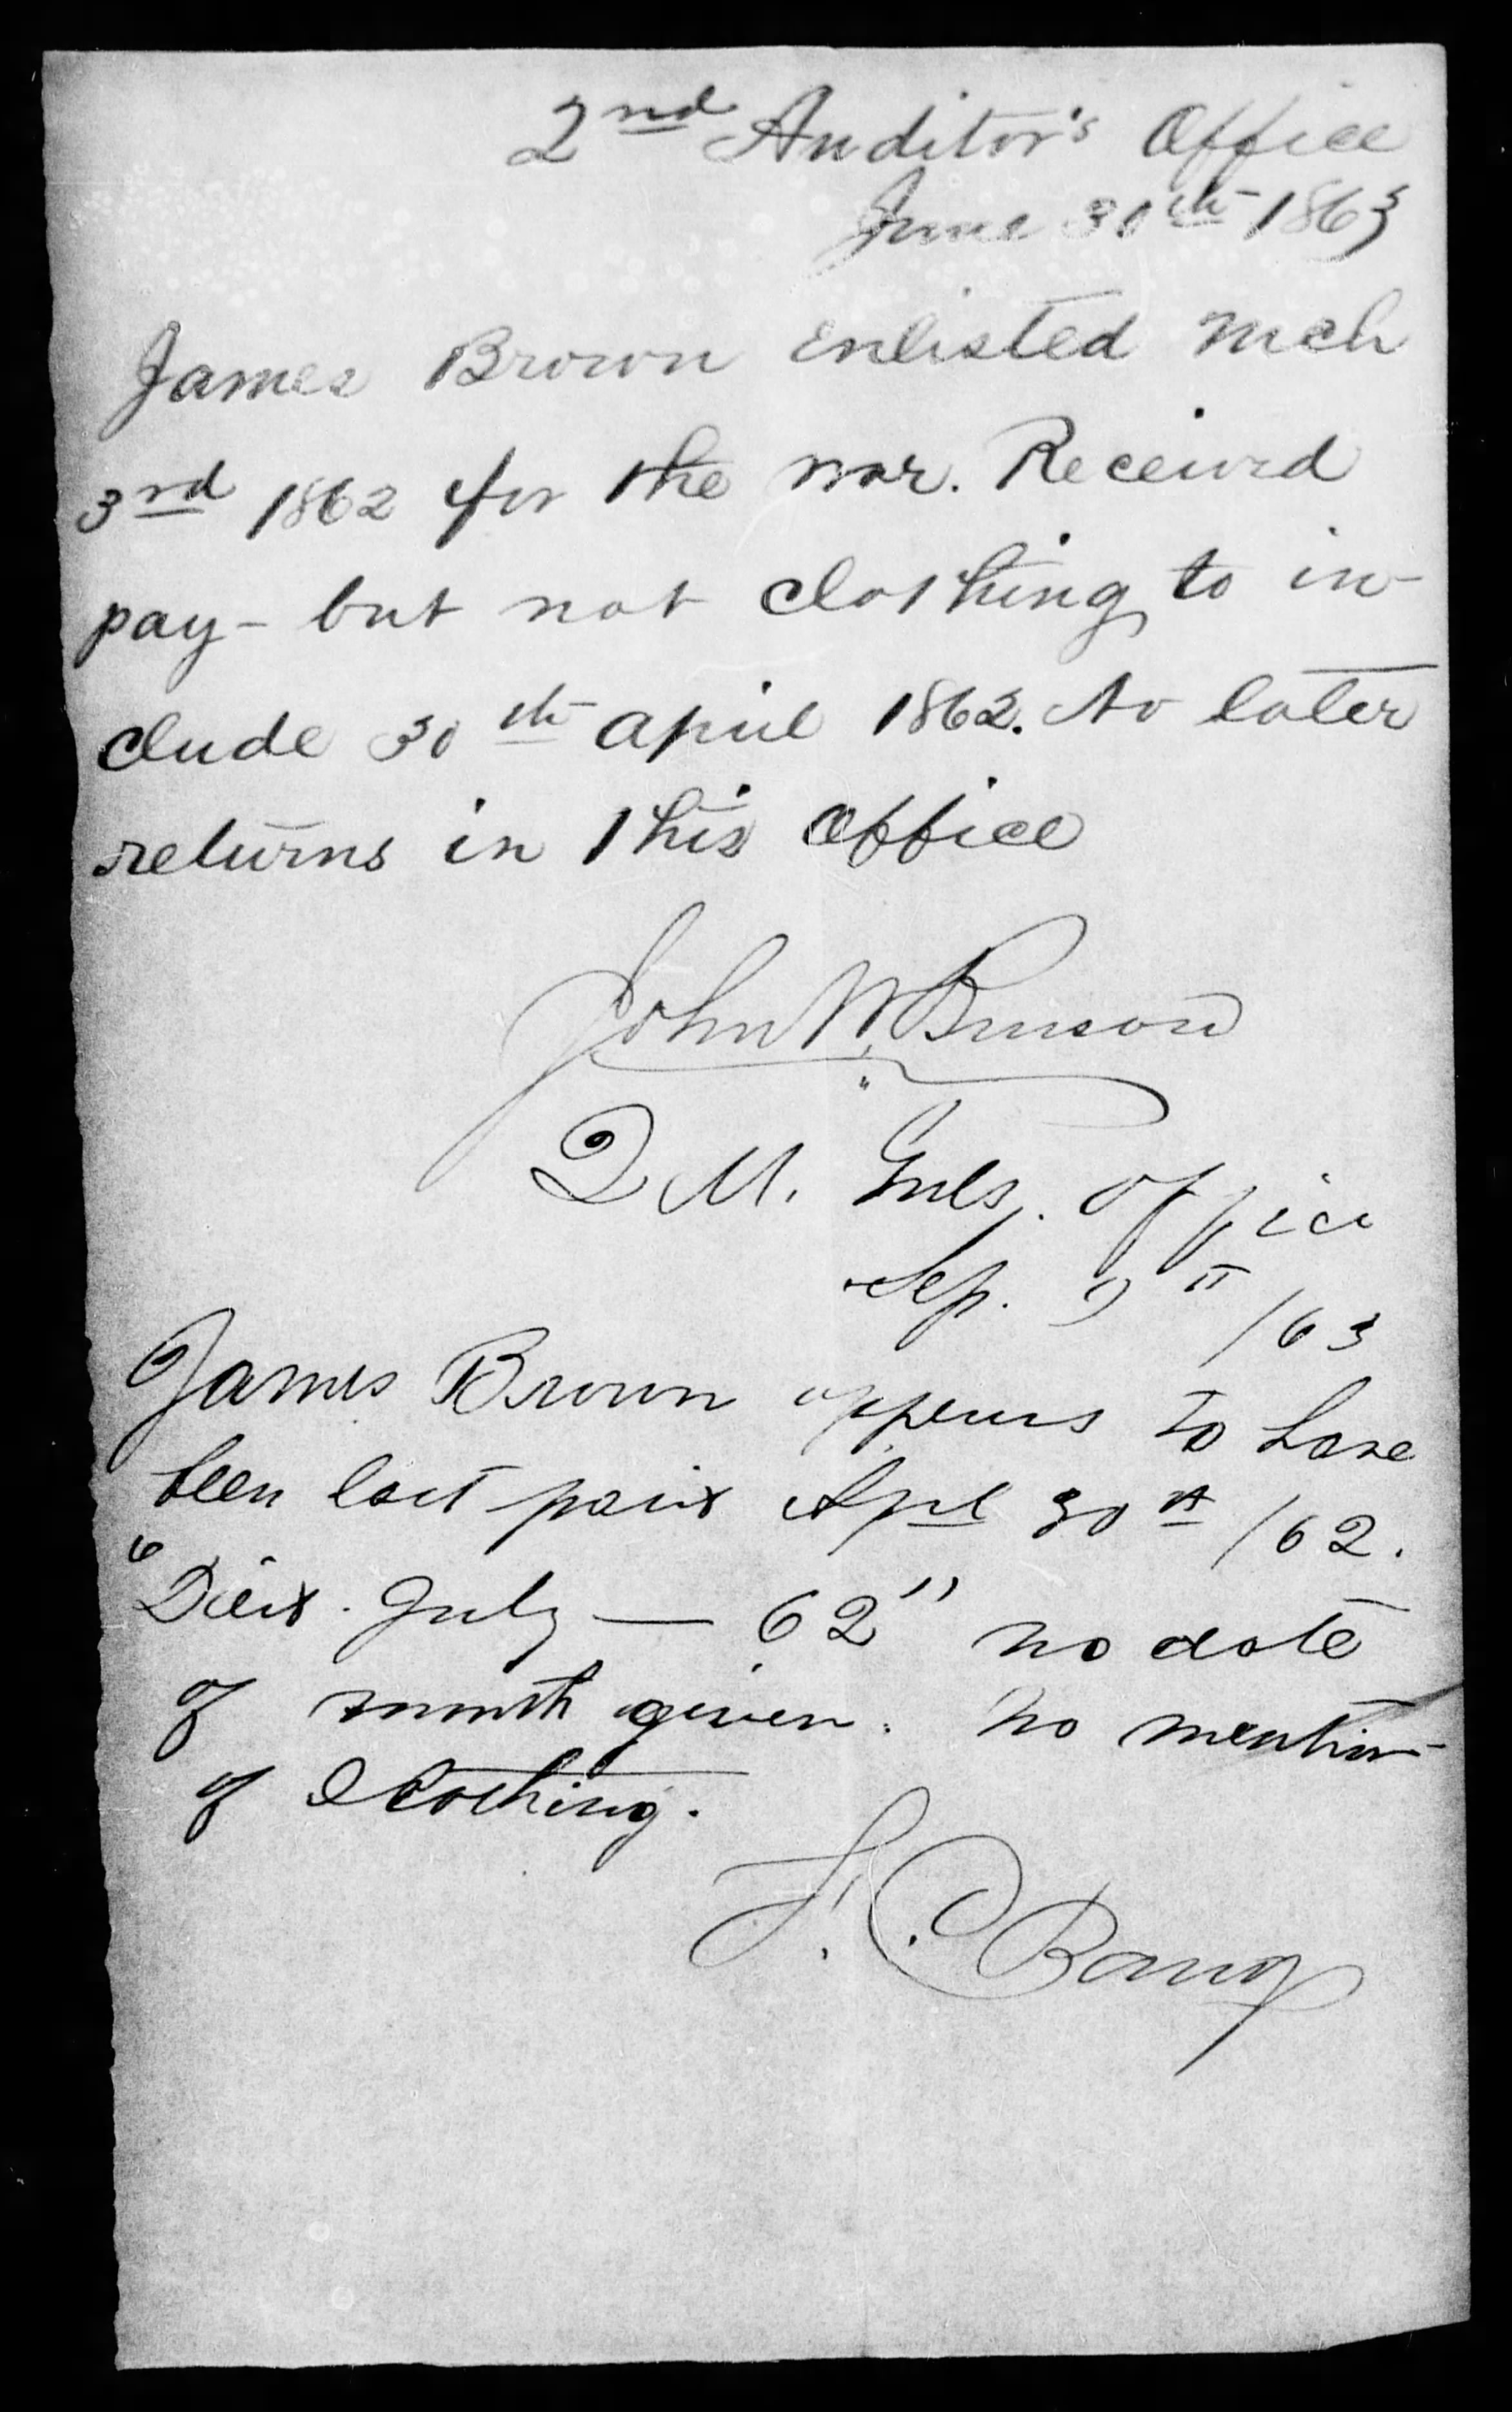 2nd Auditor's Office
June 30th 1863
James Brown enlisted Mch
3rd 1862 for the war. Received
pay - but not clothing to in-
clude 30th april 1862. No later
returns in this office
John W.
Q M. Gnls. Office
Sep. 9th /63
James Brown appears to have
been last paid Apl 30th /62.
"Died. July — 62" no date
of month given. No mention
of Clothing.
F. C.